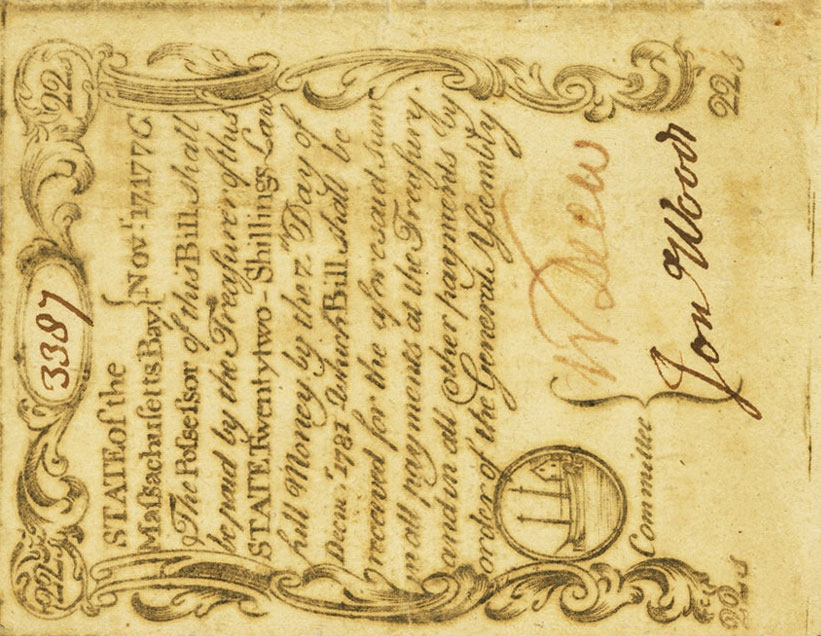 22s 3387 22s
STATE of the
Maſsachuſetts Bay. } Nov.r 17. 177C
The Poſseſsor of this Bill shall
be paid by the Treaſurer of this
STATE Twenty two - Shillings Law
full Money by the 7.th Day of
Decm.r 1781 which Bill shall be
received for the aforesaid sum
in all payments at the Treaſury.
and in all other payments by
order of the General Aſsembly
W Drew
Committee
Jon Wood
22s